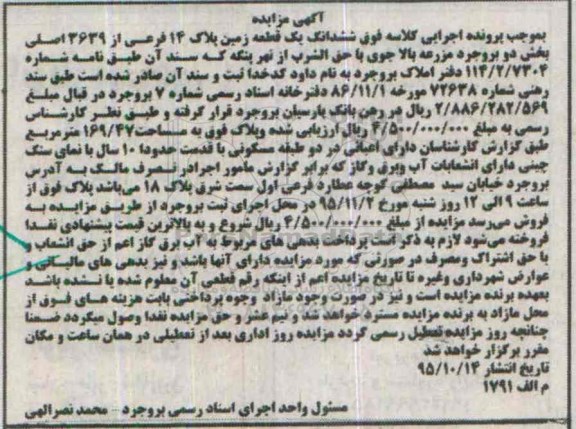 آگهی مزایده
بموجب پرونده اجرایی کلاسه فوق ششدانگ یک قطعه زمین پلاک ۱۴ فرعی از ۳۶۳۹ اصلی
بخش دو بروجرد مزرعه بالا جوی با حق الشرب از نهر ینکه که سند آن طبق نامه شماره
۱۱۴/۲/۷۳۰۴ دفتر املاک بروجرد به نام داود کدخدا ثبت و سند آن صادر شده است طبق سند
رهنی شماره ۷۲۶۳۸ مورخه ۸۶/۱۱/۱ دفترخانه اسناد رسمی شماره ۷ بروجرد در قبال مبلغ
۲/۸۸۶/۲۸۲/۵۶۹ ریال در رهن بانک پارسیان بروجرد قرار گرفته و طبق نظر کارشناس
رسمی به مبلغ ۴/۵۰۰/۰۰۰/۰۰۰ ریال ارزیابی شده وپلاک فوق به مساحت۱۶۹/۴۷ مترمربع
طبق گزارش کارشناسان دارای اعیانی در دو طبقه مسکونی با قدمت حدودا ۱۰ سال با نمای سنگ
چینی دارای انشعابات آب وبرق وگاز که برابر گزارش مامور اجرادر تصرف مالک به آدرس
بروجرد خیابان سید مصطفی کوچه عطارد فرعی اول سمت شرق پلاک ۱۸ می‌باشد پلاک فوق از
ساعت ۹ الی ۱۲ روز شنبه مورخ ۹۵/۱۱/۲ در محل اجرای ثبت بروجرد از طریق مزایده به
فروش می‌رسد مزایده از مبلغ ۴/۵۰۰/۰۰۰/۰۰۰ ریال شروع و به بالاترین قیمت پیشنهادی نقدا
فروخته می‌شود لازم به ذکر است پرداخت بدهی های مربوط به آب برق گاز اعم از حق انشعاب و
یا حق اشتراک ومصرف در صورتی که مورد مزایده دارای آنها باشد و نیز بدهی های مالیاتی و
عوارض شهرداری وغیره تا تاریخ مزایده اعم از اینکه رقم قطعی آن معلوم شده یا نشده باشد
بعهده برنده مزایده است و نیز در صورت وجود مازاد وجوه پرداختی بابت هزینه های فوق از
محل مازاد به برنده مزایده مسترد خواهد شد و نیم عشر و حق مزایده نقدا وصول میگردد ضمنا
چنانچه روز مزایده تعطیل رسمی گردد مزایده روز اداری بعد از تعطیلی در همان ساعت و مکان
مقرر برگزار خواهد شد
تاریخ انتشار ۹۵/۱۰/۱۴
م الف ۱۷۹۱
مسئول واحد اجرای اسناد رسمی بروجرد - محمد نصرالهی